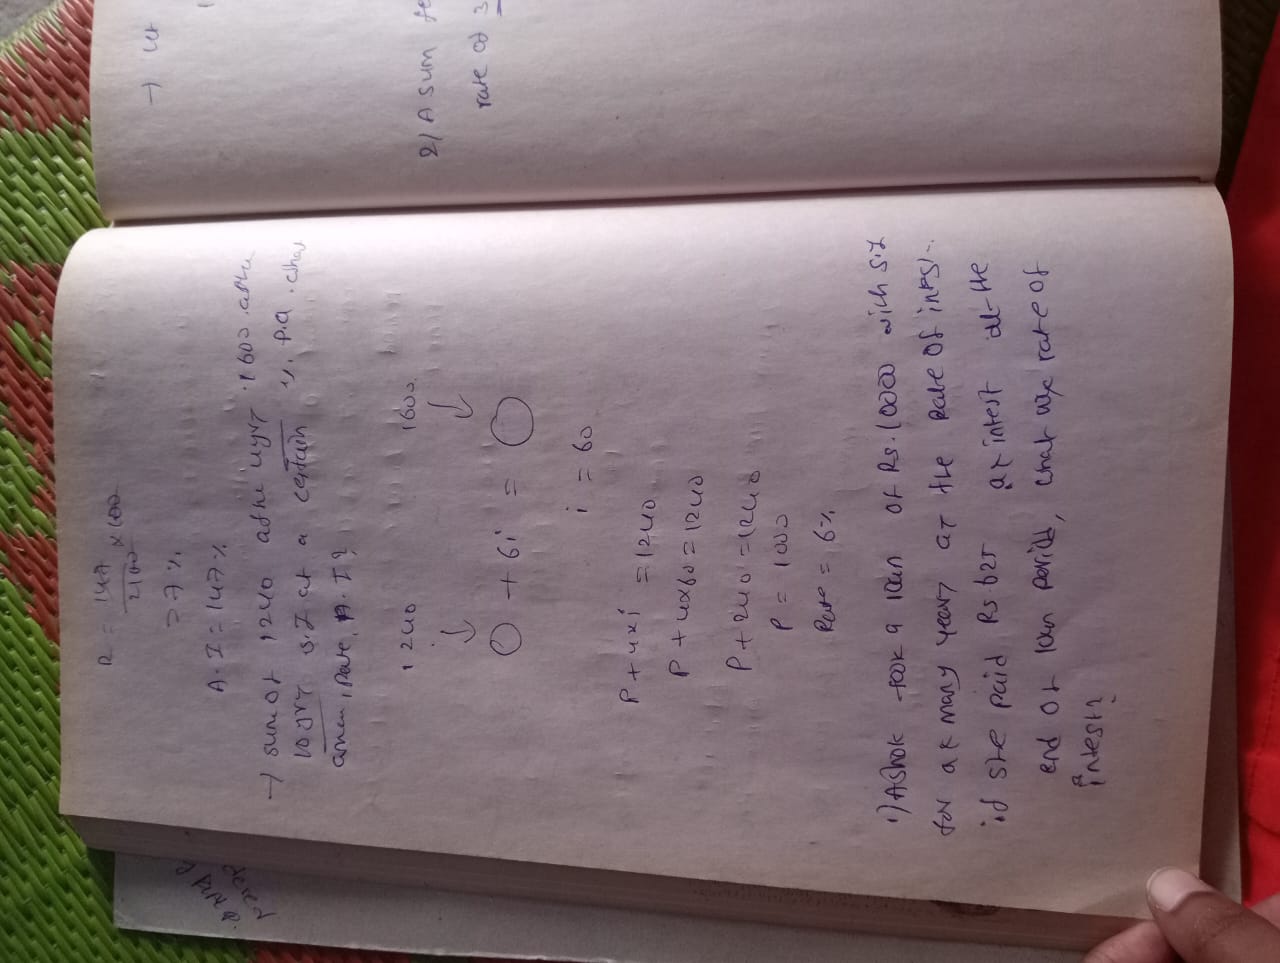 R = 147/2100 × 100
=> 7%
A.I = 147%
→ sum of 1240 after 4yr 1600 after
10yr s.I at a certain % P.a.
P.I?
1240 1600
○ + 6i = ○
i = 60
P + 4xi = 1240
P + 4x60 = 1240
P + 240 = 1240
P = 1000
Rate = 6%
1) AShok took a loan of Rs.10000 with S.I
for as many years as the Rate of intrest.
if she paid Rs as intrest at the
end of loan period, what was rate of
intrest?
→ let
2) A sum
rate of 3